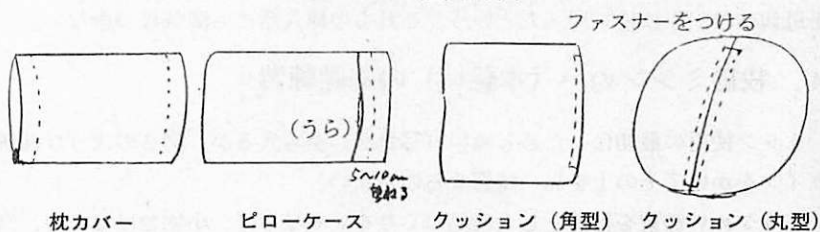 ファスナーをつける
(うら)
5〜10cm
重ねる
枕カバー ピローケース クッション(角型) クッション(丸型)